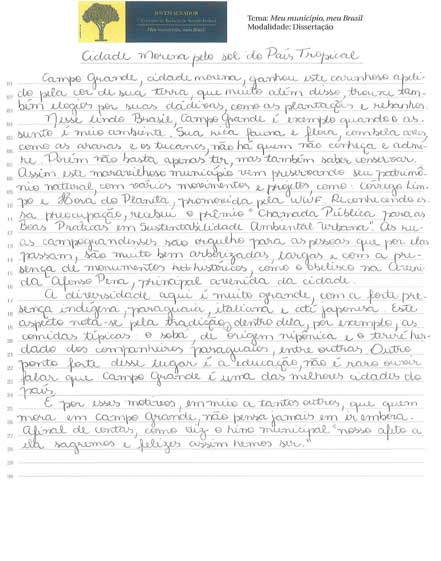 JOVEM SENADOR
Meu município, meu Brasil
Tema: Meu município, meu Brasil
Modalidade: Dissertação
Cidade Morena pelo sol do País Tropical
01 Campo Grande, cidade morena, ganhou este carinhoso apeli-
02 do pela cor de sua terra, que muito além disso, trouxe tam-
03 bém elogios por suas dádivas, como as plantações e rebanhos.
04 Nesse lindo Brasil, Campo Grande é exemplo quando o as-
05 sunto é meio ambiente. Sua rica fauna e flora, com belas aves,
06 como as araras e os tucanos, não há quem não conheça e admi-
07 re. Porém não basta apenas ter, mas também saber conservar.
08 Assim este maravilhoso município vem preservando seu patrimô-
09 nio natural, com vários movimentos e projetos como: Córrego Lim-
10 po e Hora do Planeta, promovida pela WWF. Reconhecendo es-
11 sa preocupação, recebeu o prêmio "Chamada Pública para as
12 Boas Práticas em Sustentabilidade Ambiental Urbana". As ru-
13 as campograndenses são orgulho para as pessoas que por elas
14 passam, são muito bem arborizadas, largas e com a pre-
15 sença de monumentos históricos, como o obelisco na Aveni-
16 da Afonso Pena, principal avenida da cidade.
17 A diversidade aqui é muito grande, com a forte pre-
18 sença indígena, paraguaia, italiana e até japonesa. Este
19 aspecto nota-se pela tradição, dentro dela, por exemplo, as
20 comidas típicas: o sobá, de origem nipônica e o tereré her-
21 dado dos companheiros paraguaios, entre outras. Outro
22 ponto forte desse lugar é a educação, não é raro ouvir
23 falar que Campo Grande é uma das melhores cidades do
24 país.
25 E por esses motivos, em meio a tantos outros, que quem
26 mora em Campo Grande, não pensa jamais em ir embora.
27 Afinal de contas, como diz o hino municipal "nosso afeto a
28 ela sagremos e felizes assim hemos ser."
29
30